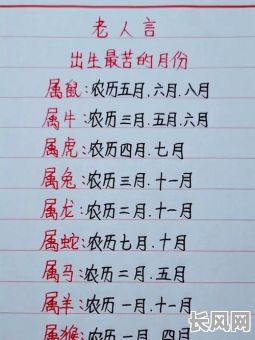 老人言
出生最苦的月份
属鼠:农历五月.六月.八月
属牛:农历三月.五月.六月
属虎:农历四月.七月
属兔:农历三月.十一月
属龙:农历二月.十一月
属蛇:农历七月.十月
属马:农历二月.五月
属羊:农历一月.十一月
属猴:农历一月.四月
长风网
cfwx.com